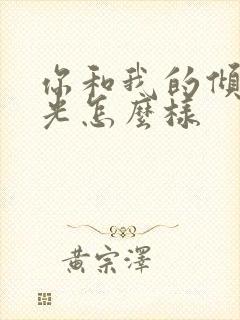 你和我的傾
光怎麼樣
黃宗澤